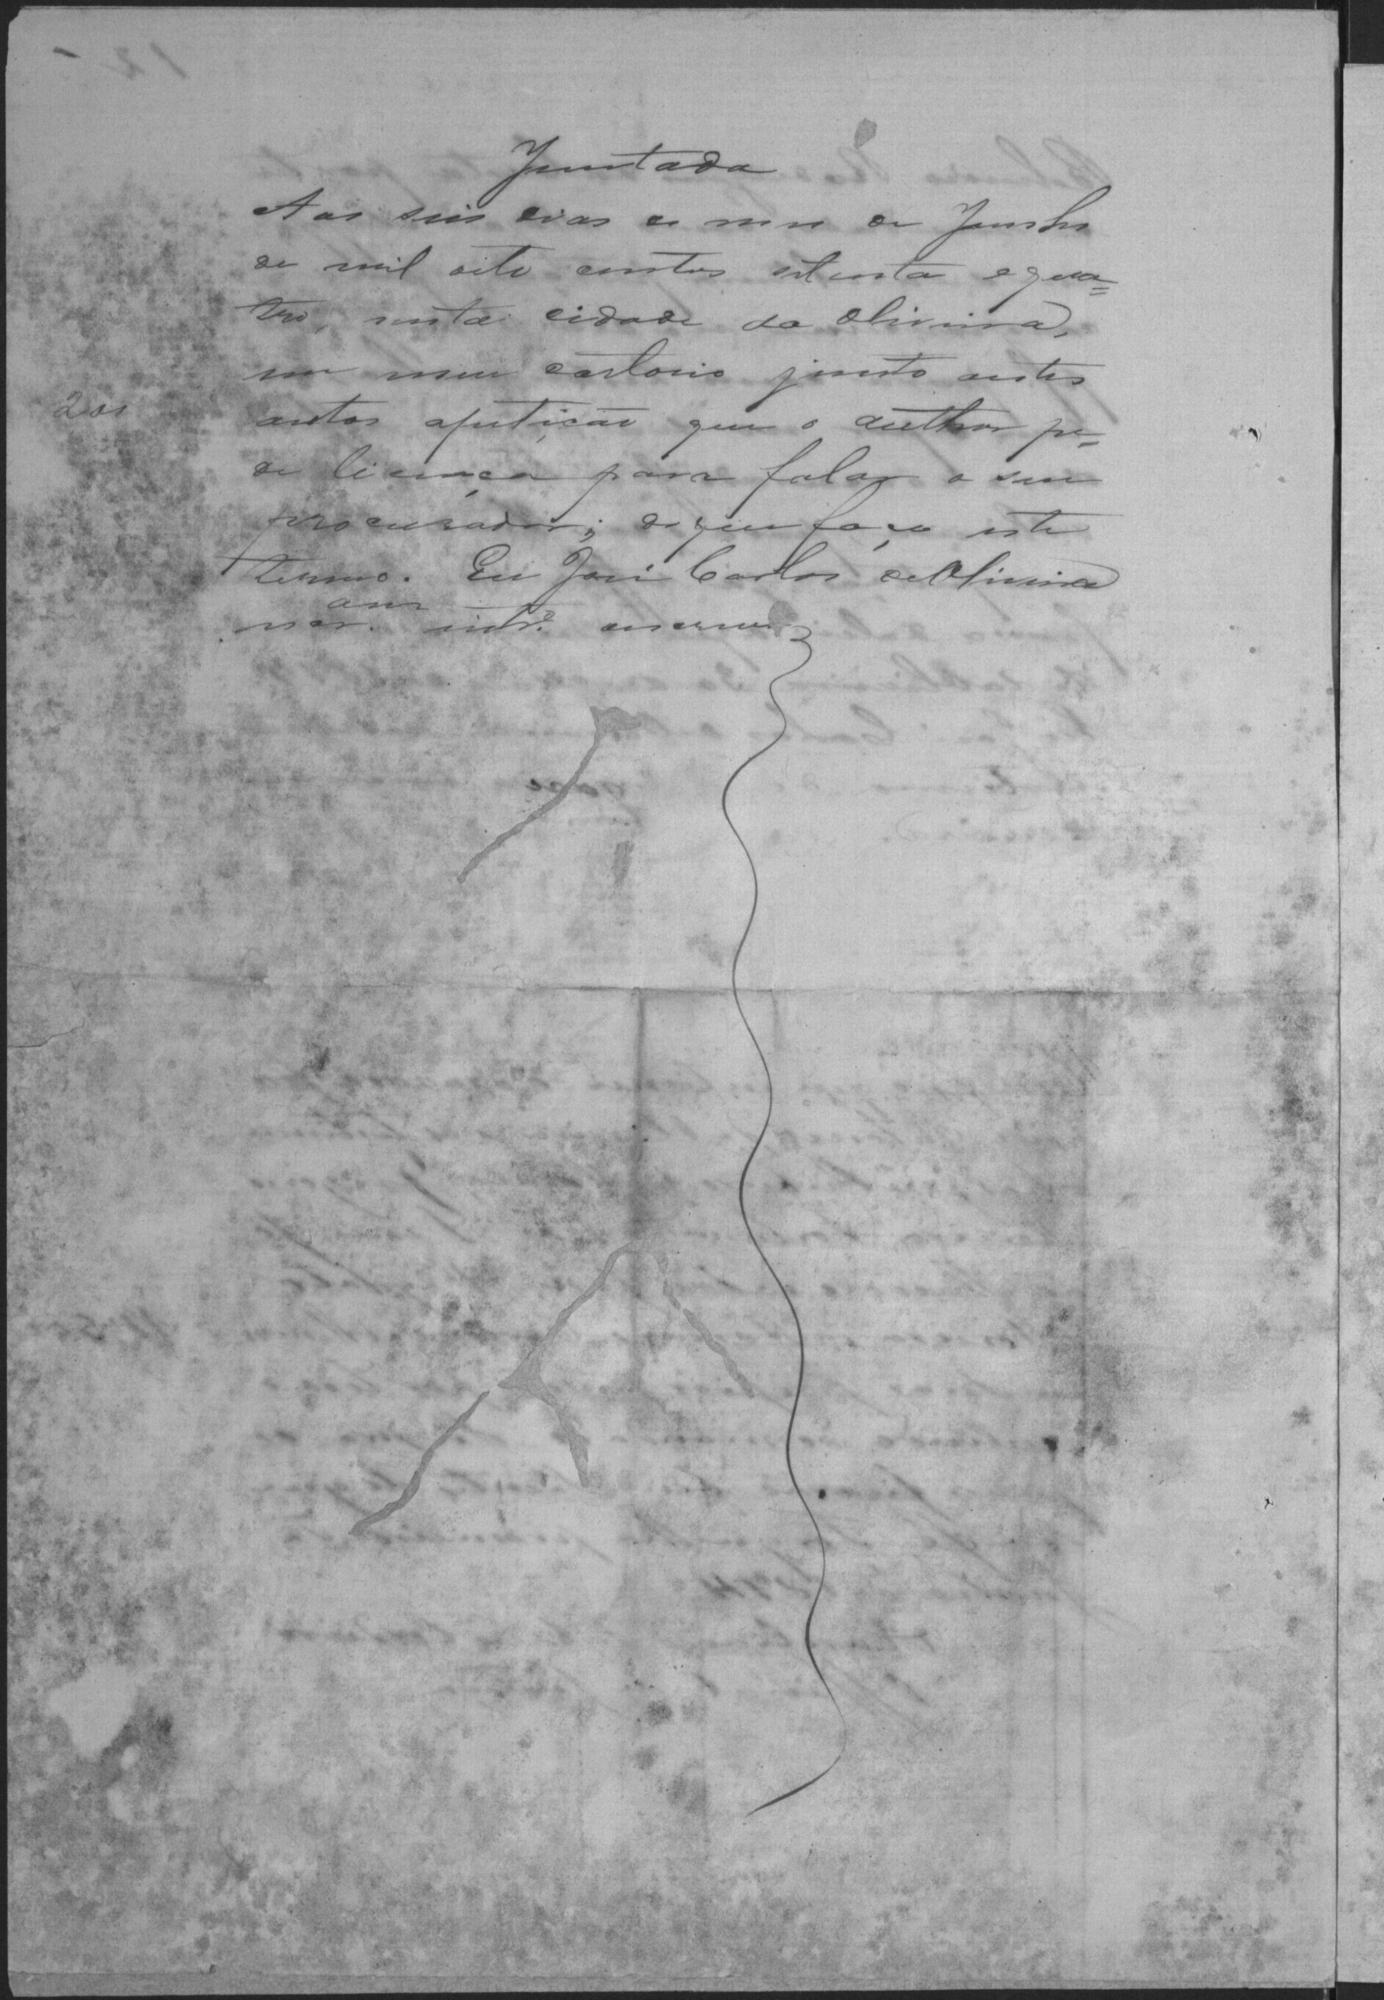 Juntada
Aos seis dias do mes de Junho
de mil oito centos setenta e qua=
tro, nesta cidade da Oliveira,
em meu cartorio junto a estes
200
autos apetiçaõ que o author pe=
de licença para falar o seu
procurador; do que faço este
termo. Eu José Carlos de Oliveira
escrevi